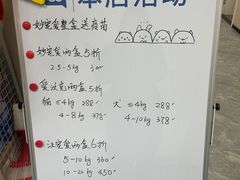 妙宠爱整盒送疫苗
妙宠爱两盒5折
2.5-5kg
爱沃克两盒5折
猫 ≤4kg 288 犬 ≤4kg 288
4-8kg 378 4-10kg 378
汪宠爱两盒6折
5-10kg 360
10-20kg 450